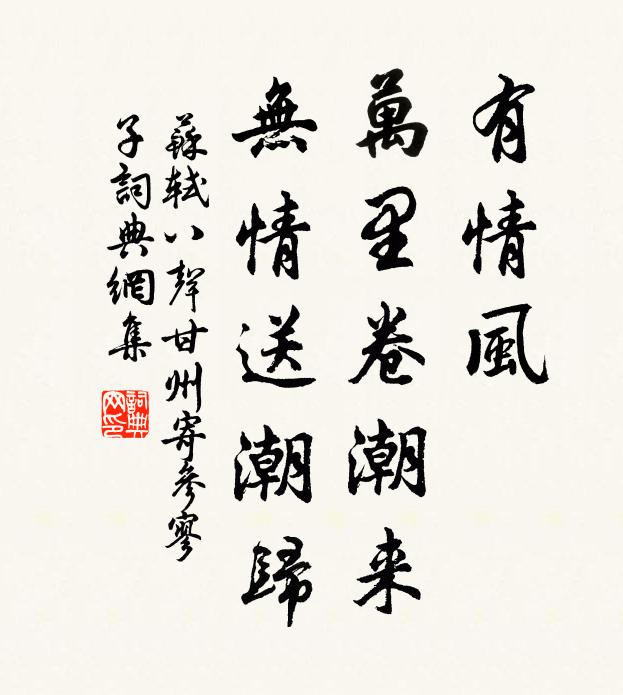 有情風
萬里卷潮来
無情送潮歸
蘇軾八聲甘州寄參寥
子詞典網集
詞典網印